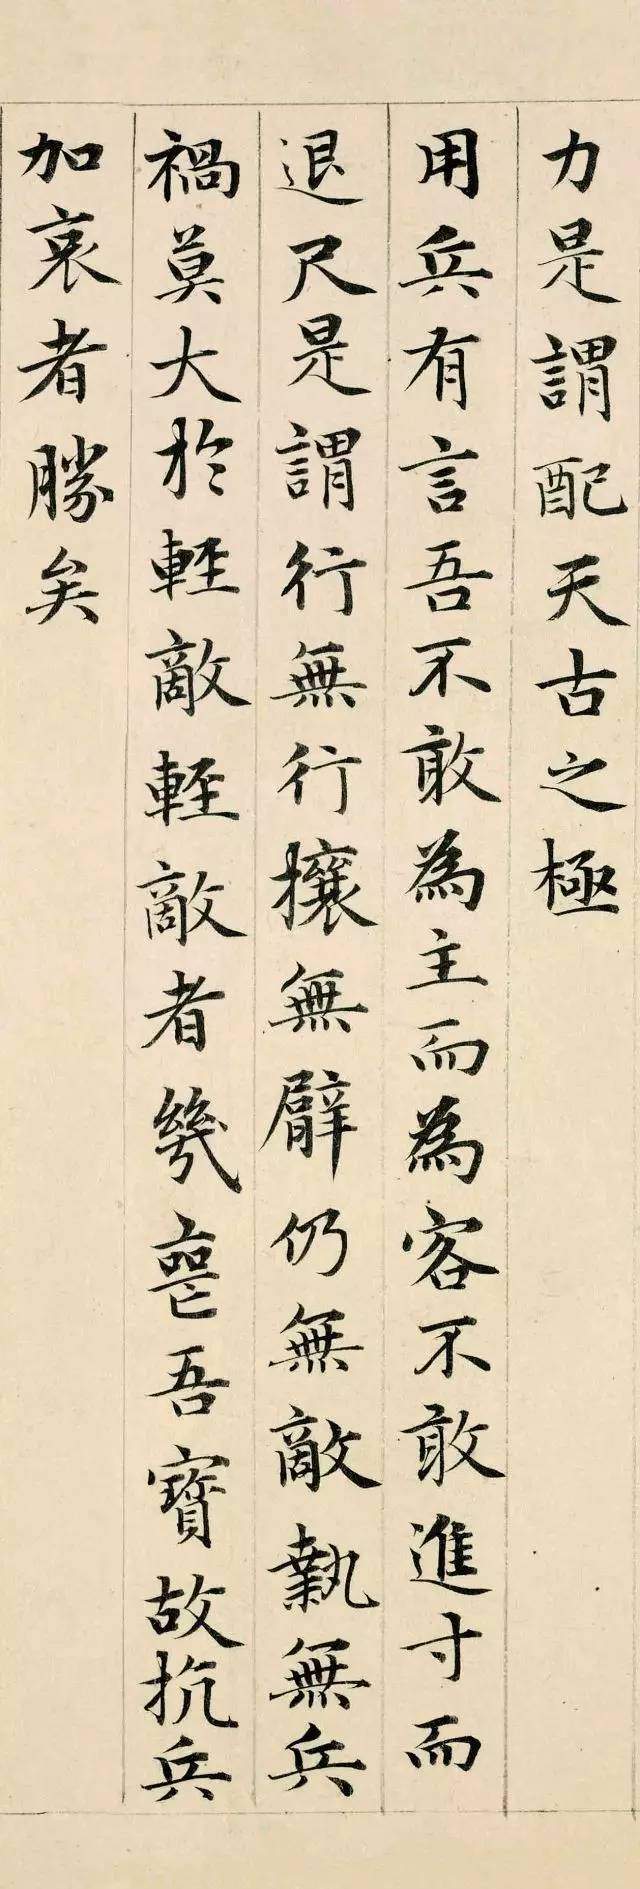 力是謂配天古之極
用兵有言吾不敢為主而為客不敢進寸而
退尺是謂行無行攘無臂仍無敵執無兵
禍莫大於輕敵輕敵者幾喪吾寶故抗兵
加哀者勝矣